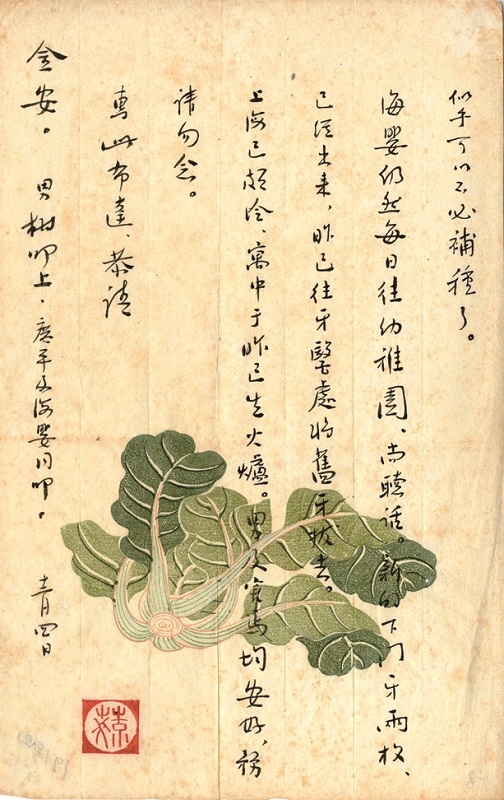 似乎可以不必補種了。
海嬰仍然每日往幼稚園、尚聽話。新的下門牙兩枚、
已經出来，昨已往牙醫處将舊牙拔去。
上海已頗冷，寓中于昨已生火爐。男及害馬均安好，務
請勿念。
專此布達、恭請
金安。
男樹叩上．廣平及海嬰同叩。
十二月四日